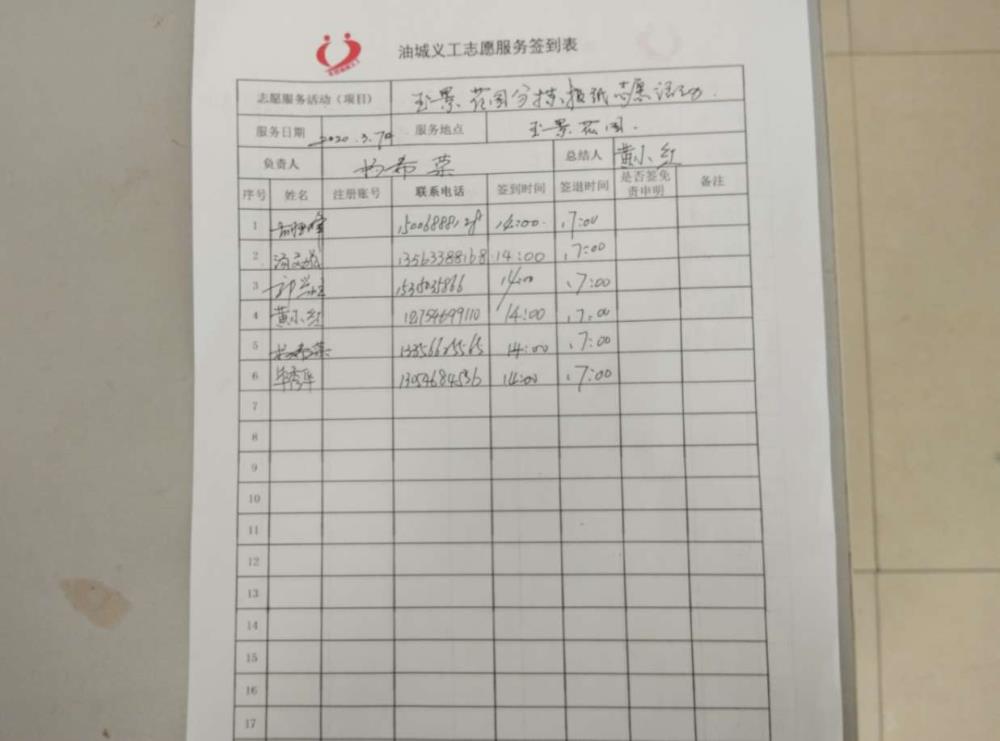 油城义工志愿服务签到表
志愿服务活动（项目） 玉景花园分拣报纸志愿活动.
服务日期 2020.3.7日 服务地点 玉景花园.
负责人 杨希菜 总结人 黄小红
序号 姓名 注册账号 联系电话 签到时间 签退时间 是否签免责申明 备注
1 14:00. 17:00
2 13563388168 14:00 17:00
3 14:00 17:00
4 黄小红 14:00 17:00
5 杨希菜 14:00 17:00
6 毕秀华 14:00 17:00
7
8
9
10
11
12
13
14
15
16
17